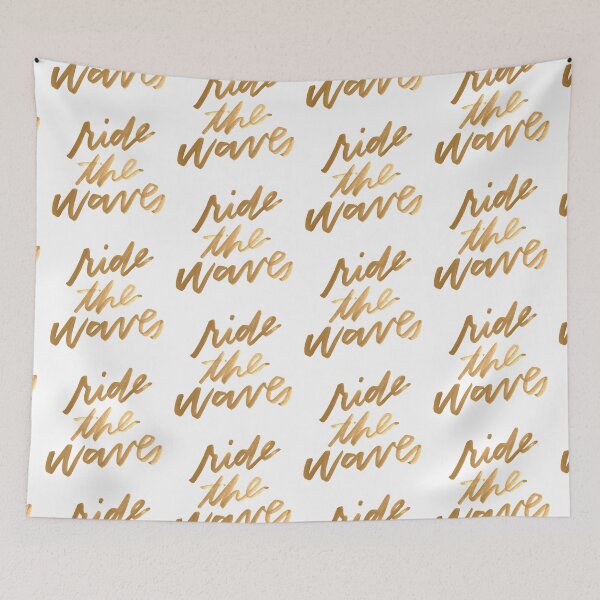 waves
ride
the
waves
ride
the
waves
ride
the
waves
ride
ride
the
waves
ride
the
waves
ride
the
waves
ride
the
waves
waves
ride
the
waves
ride
the
waves
ride
the
waves
ride
ride
the
waves
ride
the
waves
ride
the
waves
ride
the
waves